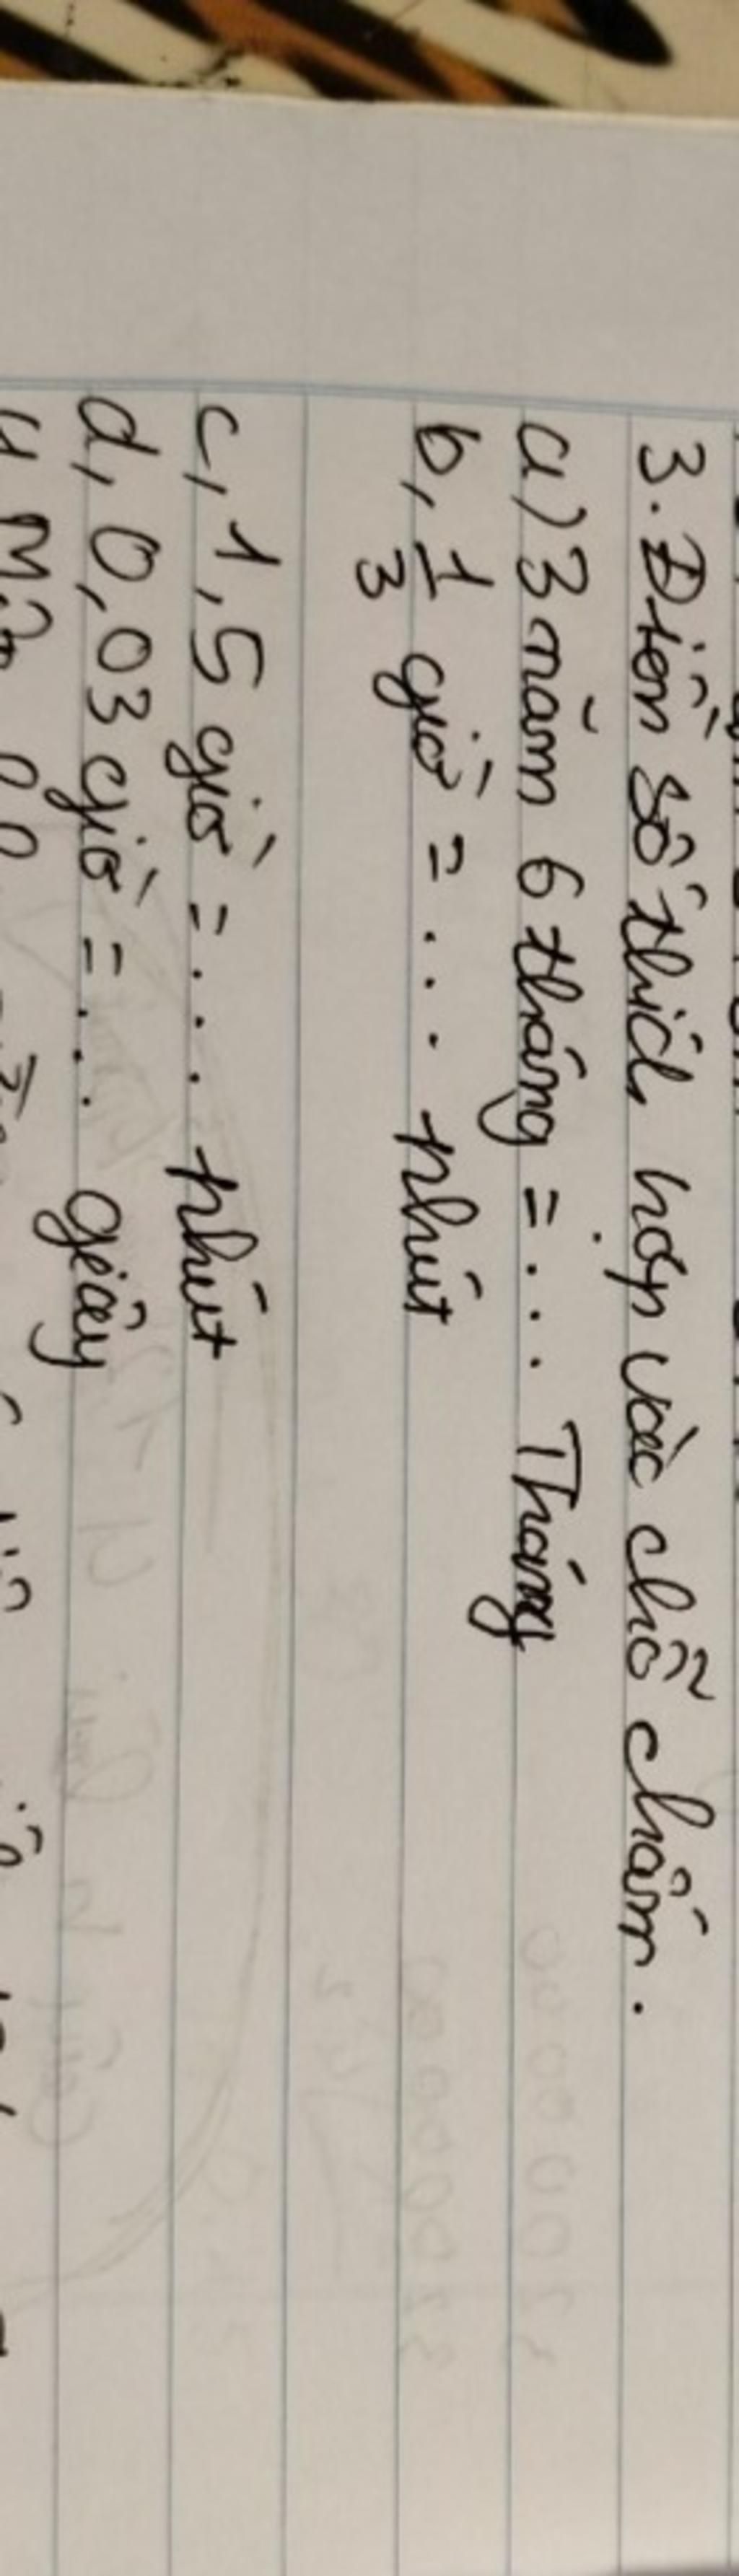 3. Điền số thích hợp vào chỗ chấm.
a) 3 năm 6 tháng = ... Tháng
b, 1/3 giờ = ... phút
c, 1,5 giờ = ... phút
d, 0,03 giờ = ... giây